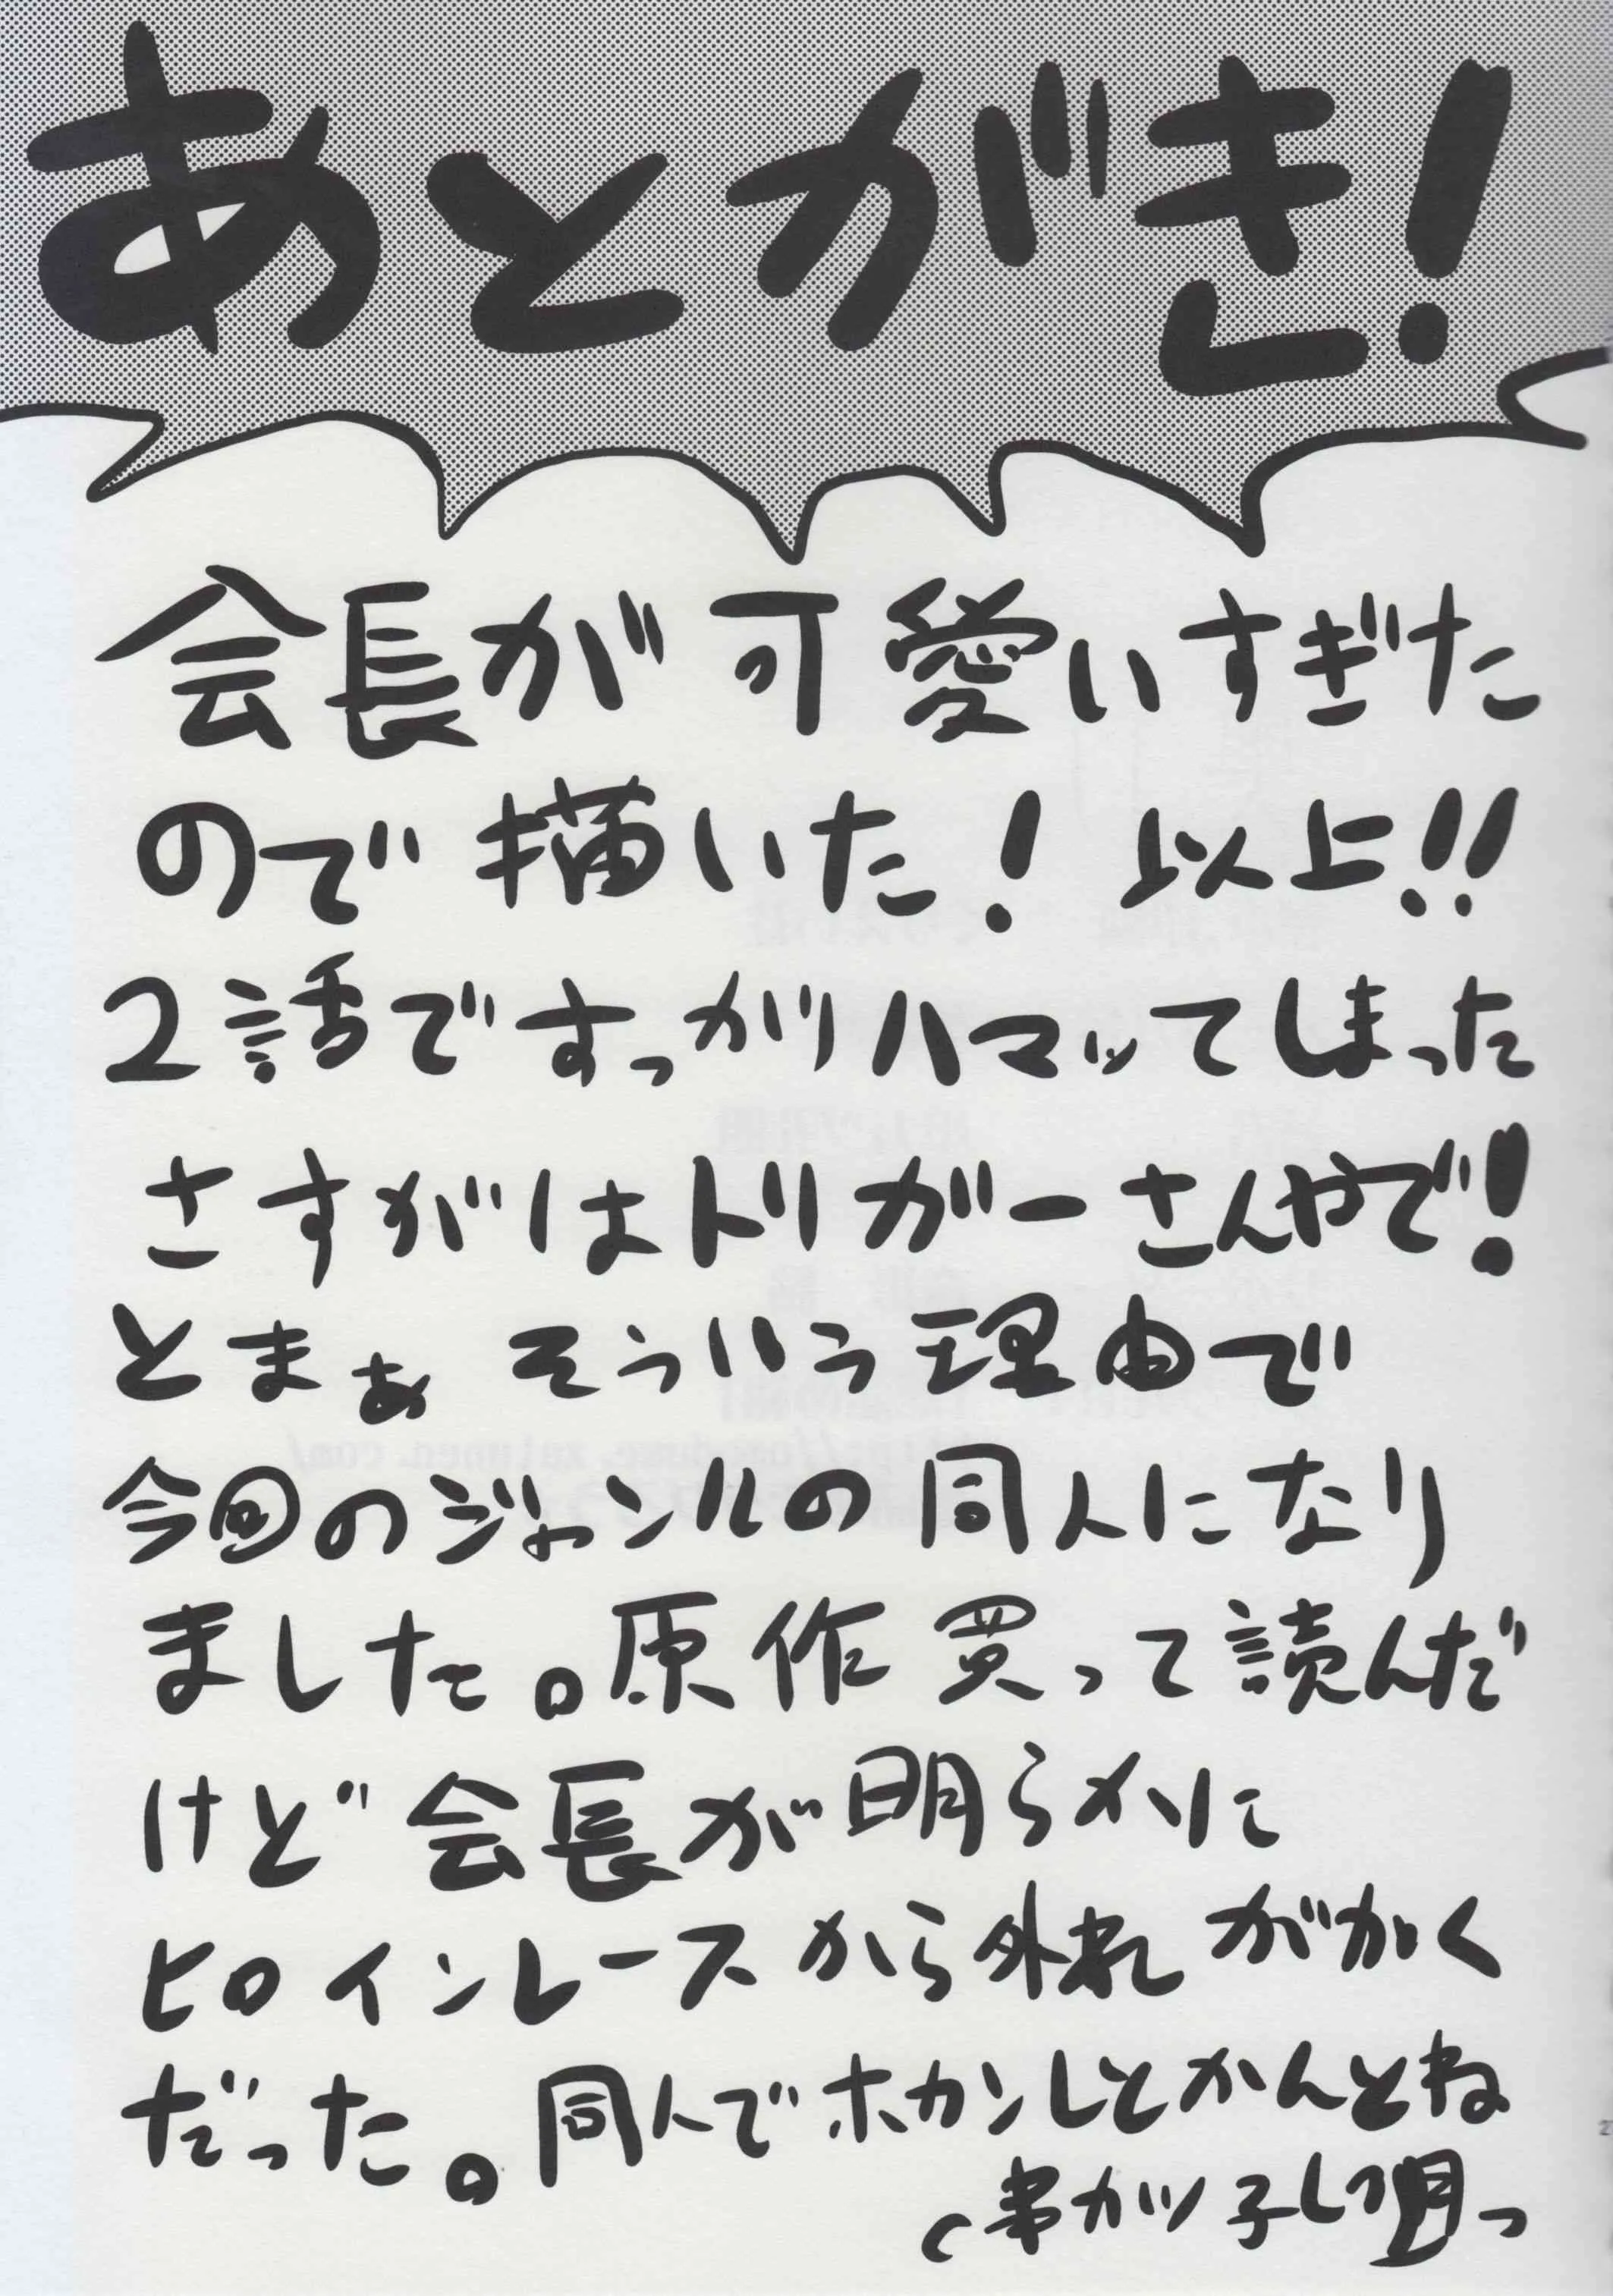 あとがき!
会長が可愛いすぎた
ので描いた! 以上!!
2話ですっかりハマッてしまった
さすがはトリガーさんやで!
とまぁ そういう理由で
今回のジャンルの同人になり
ました。原作買って読んだ
けど会長が明らかに
ヒロインレースから外れがかく
だった。同人でホカンしとかんとね
串カツ孔明